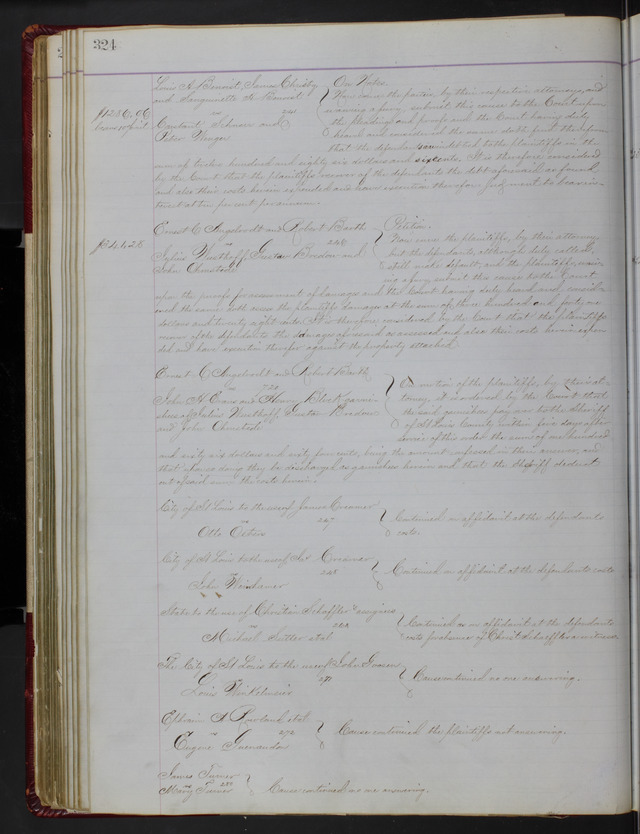 324
Louis A. Benoist, James Christy
and Sanguinette H. Benoist
vs 241
Constant Schnerr and
Peter Wenger
On Notes.
Now come the parties by their respective attorneys, and
waiving a jury, submit this cause to the Court upon
the pleadings and proofs and the Court having duly
heard and considered the same doth find that
that the defendants indebted to the plaintiffs in the
sum of hundred and eighty six dollars and cents. It is therefore considered
by the Court that the plaintiffs recover of the defendants the debt aforesaid as found
and also their costs herein expended and have execution therefor, judgment to bear in-
terest at ten per cent per annum.
Ernest C. Angelrodt and Robert Barth
vs 246
Julius Westhoff, Gustav Bredow and
John Olmstead
Petition.
Now come the plaintiffs, by their attorney,
but the defendants, although duly called,
still make default and the plaintiffs, waiv-
ing a jury submit this cause to the Court
upon the proofs for assessment of damages and the Court having duly heard and consid-
ered the same doth assess the plaintiffs damages at the sum of hundred and forty one
dollars and twenty eight cents. It is therefore considered by the Court that the plaintiffs
recover of the defendants the damages aforesaid as assessed and also their costs herein expen-
ded and have execution therefor against the property attached.
Ernest C. Angelrodt and Robert Barth
vs 720
John H. Evans and Henry garni-
shees of Julius Westhoff, Gustav Bredow
and John Olmstead
On motion of the plaintiffs, by their at-
torney, it is ordered by the Court that
the said garnishees pay unto the Sheriff
of St Louis County within five days after
service of this order the sum of one hundred
and sixty six dollars and sixty four cents, being the amount confessed in their answer, and
that upon so doing they be discharged as garnishees herein and that the Sheriff deduct
out of said sum the costs herein.
City of St Louis to the use of James Creamer
vs 247
Otto
Continued on affidavit at the defendants
costs.
City of St Louis to the use of Jas. Creamer
248
John Weinhauer
Continued on affidavit at the defendants costs
State to the use of Christian Schaffler assignee
vs 266
Michael Sutter et al
Continued on affidavit at the defendants
costs for absence of Christ. Schaeffler a witness
The City of St Louis to the use of John
271
Louis Winkelmeier
Cause continued no one answering.
Ephraim A. Rowland et al
vs 272
Eugene Guenandon
Cause continued the plaintiffs not answering.
James Turner
vs 280
Mary Turner
Cause continued no one answering.